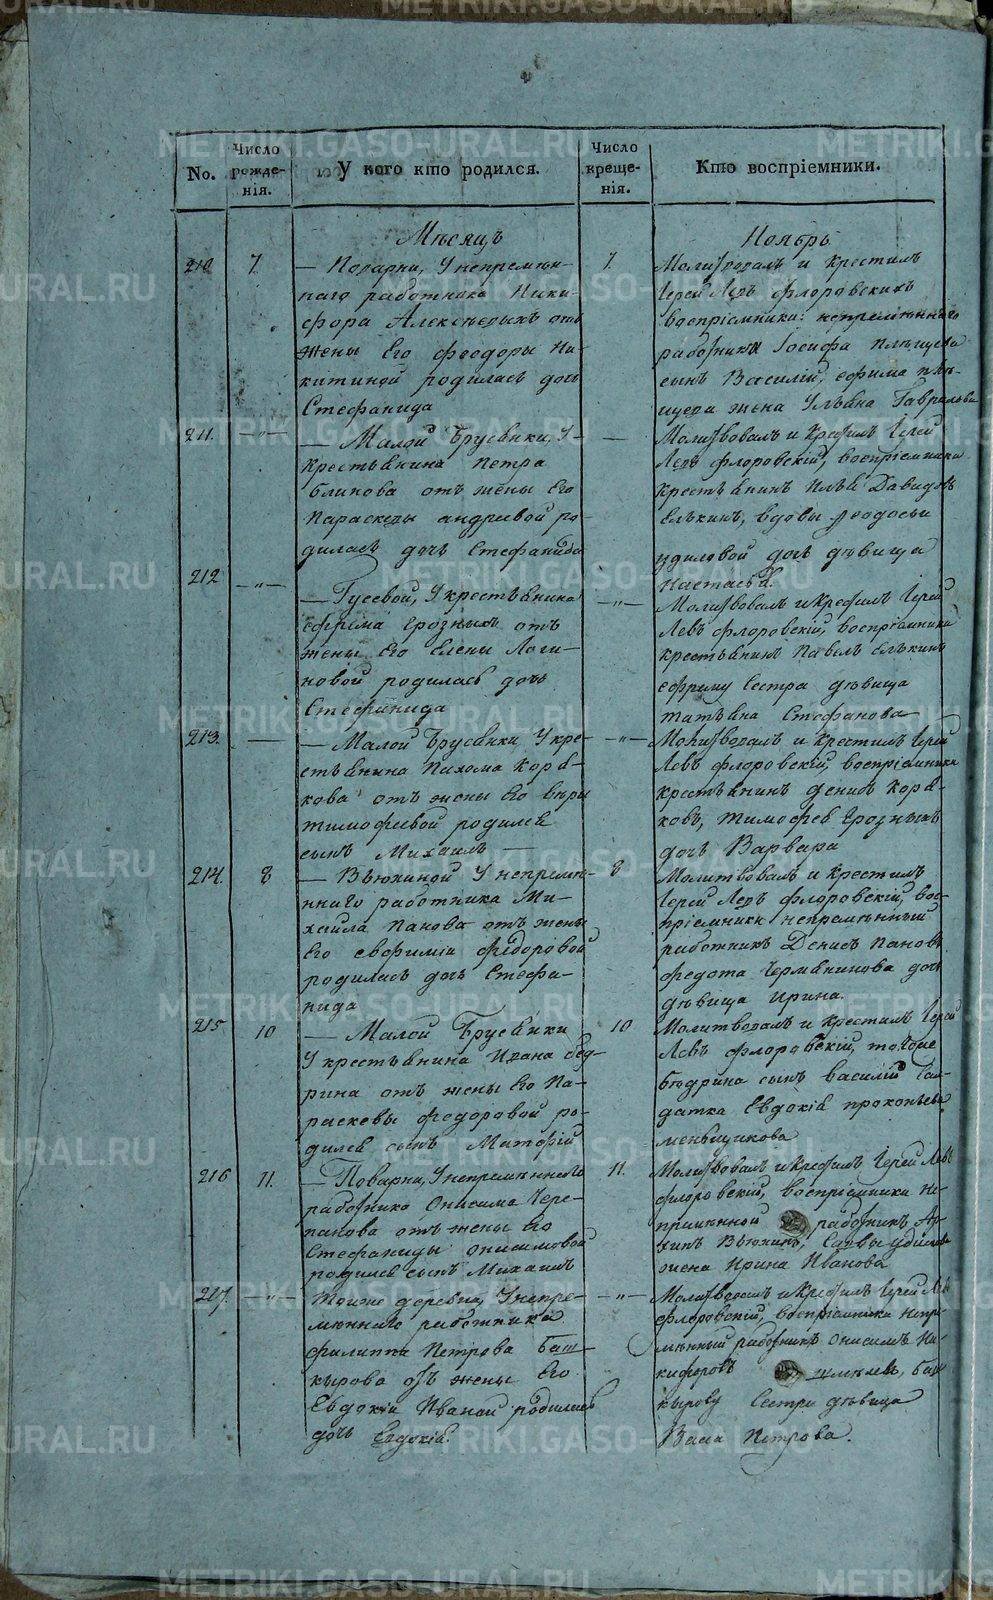 No.
Число рожде-нія.
У кого кто родился.
Число креще-нія.
Кто воспріемники.
Мѣсяцъ
Ноябрь
210 7.
— Поварни, У непремѣн-
наго работника Ники-
фора Алексѣевыхъ отъ
жены его Феодоры Ни-
китиной родилась дочь
Стефанида
7.
Молитвовалъ и крестилъ
Іерей Левъ Флоровскихъ
воспріемники: непремѣннаго
работника Іосифа
сынъ Василій, Ефима
жена Ульяна Гаврилова
211. —〃—
— Малой Брусянки, У
крестьянина Петра
Блинова отъ жены его
Параскевы Андреевой ро-
дилась дочь Стефанида
—
Молитвовалъ и Крестилъ Іерей
Левъ Флоровскій, воспріемники
крестьянинъ Илья Давидовъ
Елькинъ, вдовы Феодосьи
Удиловой дочь дѣвица
Настасья.
212 —〃—
— Гусевой, У крестьянина
Ефрема Грозныхъ отъ
жены его Елены Логи-
новой родилась дочь
Стефанида
—〃—
Молитвовалъ и Крестилъ Іерей
Левъ Флоровскій, воспріемники
крестьянинъ Павелъ Елькинъ
Ефриму Сестра дѣвица
татьяна Стефанова
213. —
— Малой Брусянки, У кре-
стьянина Пахома Коря-
кова отъ жены его Вѣры
тимофеевой родился
сынъ Михаилъ —
—〃—
Молитвовалъ и крестилъ Іерей
Левъ Флоровскій, воспріемники
крестьянинъ Денисъ Коря-
ковъ, тимофея Грозныхъ
дочь Варвара
214. 8
— Вьюхиной У непремѣ-
ннаго работника Ми-
хаила Панова отъ жены
его Евфиміи Федоровой
родилась дочь Стефа-
нида
8
Молитвовалъ и крестилъ
Іерей Левъ Флоровскій, вос-
пріемники непремѣнный
работникъ Денисъ Пановъ
Федота Чермянинова дочь
дѣвица Ирина.
215 10
— Малой Брусянки
У крестьянина Ивана Бюд-
рина отъ жены его Па-
раскевы Федоровой ро-
дился сынъ
10
Молитвовалъ и крестилъ Іерей
Левъ Флоровскій,
Бюдрина сынъ Василій Сол-
датка Евдокія Прокопьева
меньщикова
216 11.
— Поварни, У непремѣннаго
работника Онисима Чере-
панова отъ жены его
Стефаниды Онисимовой
родился сынъ Михаилъ
11.
Молитвовалъ и Крестилъ Іерей Левъ
Флоровскій, воспріемники не-
премѣнной работникъ Ар-
хипъ Вьюхинъ, Саввы
жена Ирина Иванова
217. —〃—
тойже деревни, У непре-
мѣннаго работника
Филиппа Петрова Баш-
кырова отъ жены его
Евдокіи Ивановой родилась
дочь Евдокія.
—〃—
Молитвовалъ и Крестилъ Іерей Левъ
Флоровскій, воспріемники непре-
мѣнный работникъ Онисимъ Ни-
кифоровъ Баш-
кырову Сестра дѣвица
Васса Петрова.
METRIKI.GASO-URAL.RU